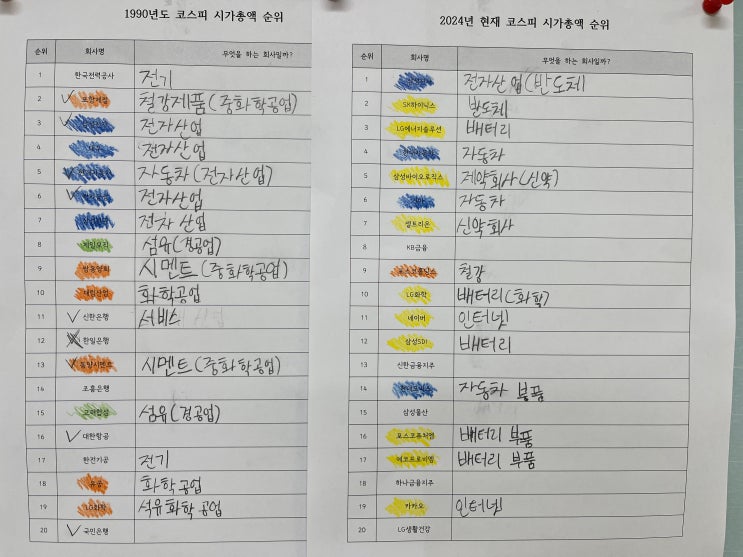 1990년도 코스피 시가총액 순위
순위 회사명 무엇을 하는 회사일까?
1 한국전력공사 전기
2 포항제철 철강제품(중화학공업)
3 전자산업
4 전자산업
5 자동차(전자산업)
6 전자산업
7 전자 산업
8 제일모직 섬유(경공업)
9 쌍용양회 시멘트(중화학공업)
10 대림산업 화학공업
11 신한은행 서비스
12 한일은행
13 동양시멘트 시멘트(중화학공업)
14 조흥은행
15 코오롱 섬유(경공업)
16 대한항공
17 한전기공 전기
18 유공 화학공업
19 LG화학 석유화학 공업
20 국민은행
2024년 현재 코스피 시가총액 순위
순위 회사명 무엇을 하는 회사일까?
1 전자산업(반도체)
2 SK하이닉스 반도체
3 LG에너지솔루션 배터리
4 자동차
5 삼성바이오로직스 제약회사(신약)
6 자동차
7 셀트리온 신약회사
8 KB금융
9 포스코홀딩스 철강
10 LG화학 배터리(화학)
11 네이버 인터넷
12 삼성SDI 배터리
13 신한금융지주
14 현대모비스 자동차 부품
15 삼성물산
16 포스코퓨처엠 배터리 부품
17 에코프로비엠 배터리 부품
18 하나금융지주
19 카카오 인터넷
20 LG생활건강